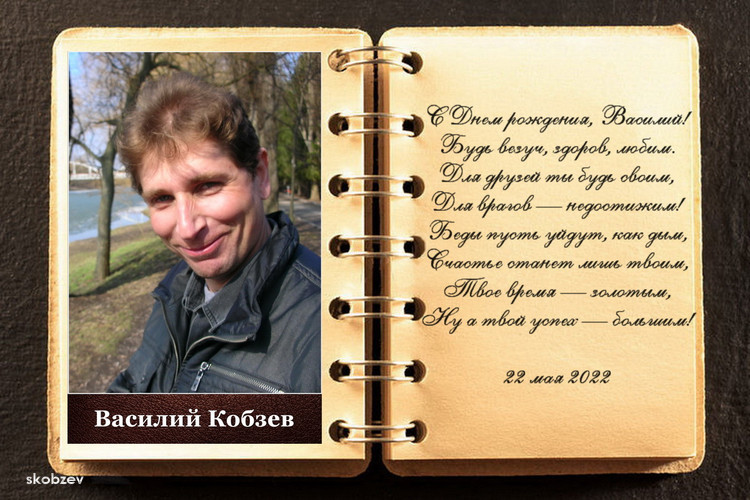 Василий Кобзев
С Днем рождения, Василий!
Будь везуч, здоров, любим.
Для друзей ты будь своим,
Для врагов — недостижим!
Беды пусть уйдут, как дым,
Счастье станет лишь твоим,
Твое время — золотым,
Ну а твой успех — большим!
22 мая 2022
skobzev